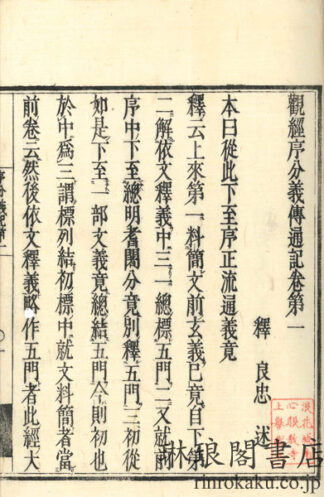 觀經序分義傳通記卷第一
釋 良忠 述
本曰從此下至序正流通義竟
釋云上來第一料簡文前玄義已竟自下第
二解依文釋義中三一總標五門二又就前
序中下至總明耆闍分竟別釋五門三初從
如是下至一部文義竟總結五門今則初也
於中爲三謂標列結初標中就文料簡者當
前卷云然後依文釋義略作五門者此經大
林琅閣書店
rinrokaku.co.jp